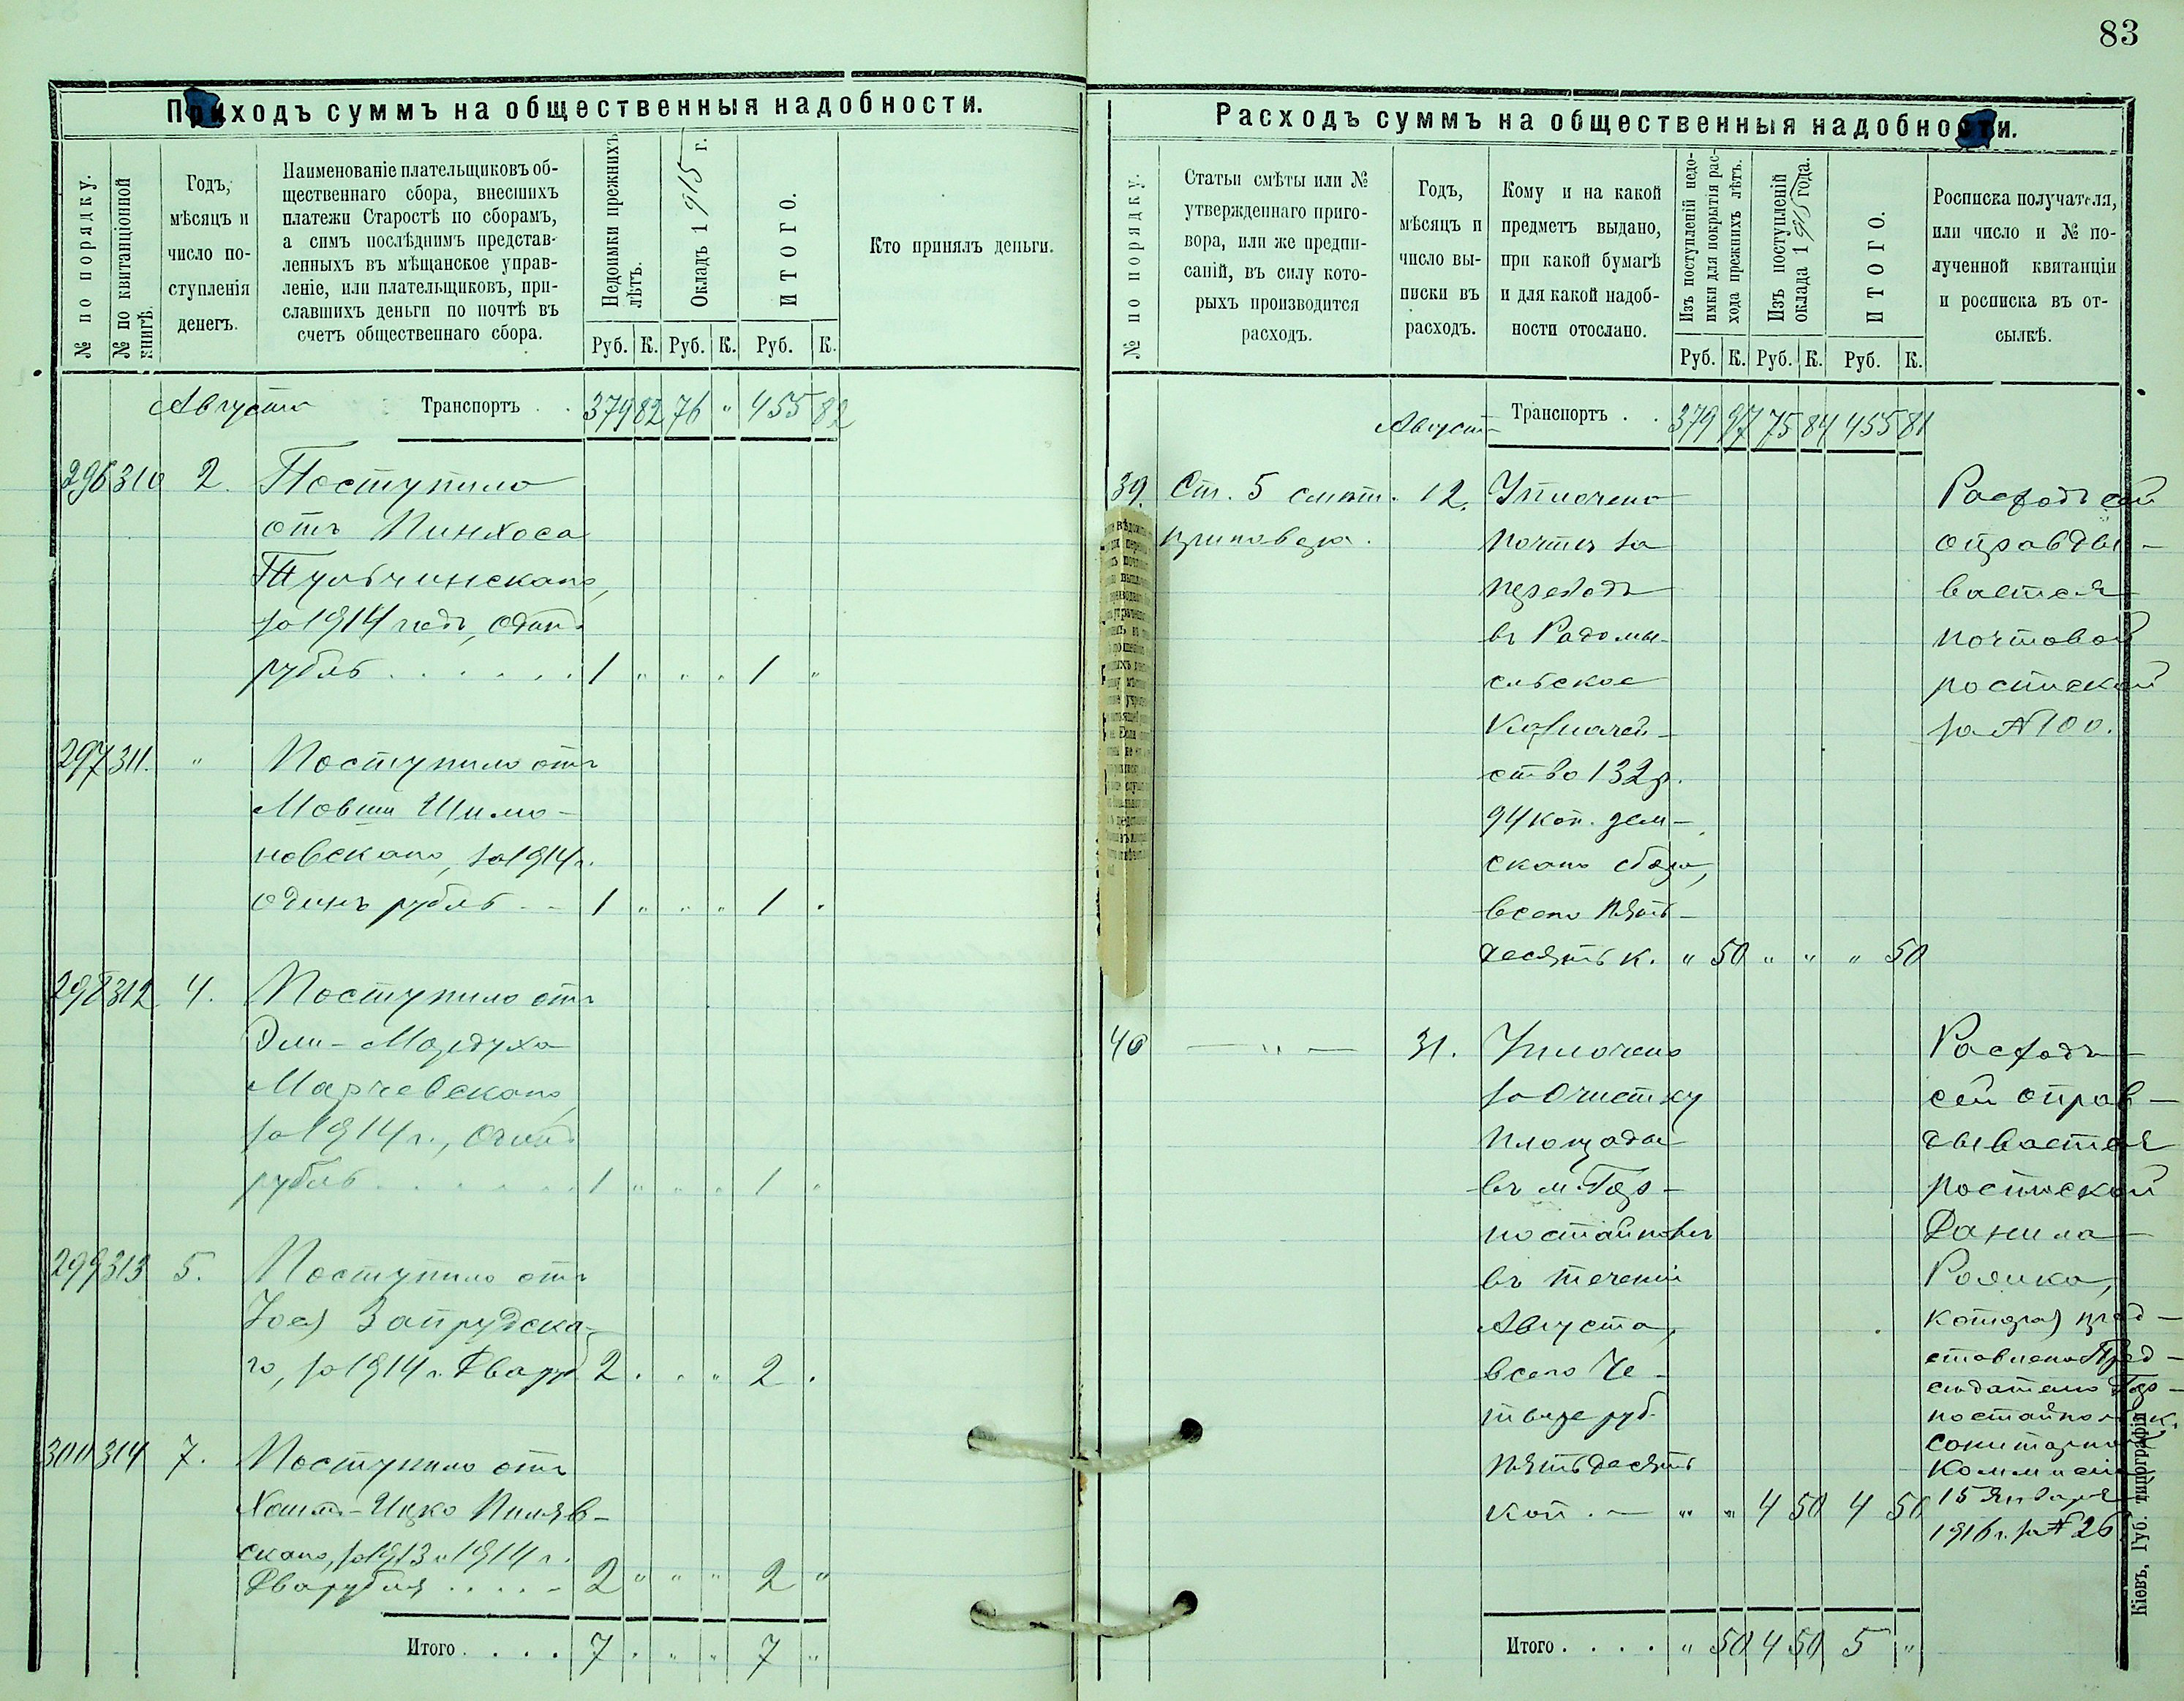 83
Приходъ суммъ на общественныя надобности.
№ по порядку.
№ по квитанціонной книгѣ.
Годъ,
мѣсяцъ и
число по-
ступленія
денегъ.
Наименованіе плательщиковъ об-
щественнаго сбора, внесшихъ
платежи Старостѣ по сборамъ,
а симъ послѣднимъ представ-
ленныхъ въ мѣщанское управ-
леніе, или плательщиковъ, при-
славшихъ деньги по почтѣ въ
счетъ общественнаго сбора.
Недоимки прежнихъ лѣтъ.
Окладъ 1915 г.
ИТОГО.
Кто принялъ деньги.
Руб. К. Руб. К. Руб. К.
Августа Транспортъ . . 379 82 76 " 455 82
296 310 2. Поступило
отъ Пинхоса
Тульчинскаго,
за 1914 годъ, одинъ
рубль . . . . . . 1 " " " 1 "
297 311. " Поступило отъ
Мовши Шимо-
новскаго, за 1914 г.
одинъ рубль - - 1 " " " 1 "
298 312 4. Поступило отъ
Эли-Мордуха
Марчевскаго,
за 1914 г., одинъ
рубль . . . . . . 1 " " " 1 "
299 313 5. Поступило отъ
Запрудска-
го, за 1914 г. два руб 2 . " " 2 .
300 314 7. Поступило отъ
-Ицко Пиляв-
скаго, за 1913 и 1914 г.
два рубля . . . . - 2 " " " 2 "
Итого . . . . 7 . " " 7 "
Расходъ суммъ на общественныя надобности.
№ по порядку.
Статьи смѣты или №
утвержденнаго приго-
вора, или же предпи-
саній, въ силу кото-
рыхъ производится
расходъ.
Годъ,
мѣсяцъ и
число вы-
писки въ
расходъ.
Кому и на какой
предметъ выдано,
при какой бумагѣ
и для какой надоб-
ности отослано.
Изъ поступленій недо-
имки для покрытія рас-
хода прежнихъ лѣтъ.
Изъ поступленій
оклада 1915 года.
ИТОГО.
Росписка получателя,
или число и № по-
лученной квитанціи
и росписка въ от-
сылкѣ.
Руб. К. Руб. К. Руб. К.
Август Транспортъ . . 379 97 75 84 455 81
39. Ст. 5 смѣт. 12. Уплочено Расходъ сей
приговора. почтѣ за оправды-
переводъ вается
въ Радомы- почтовой
сльское роспиской
Казначей- за № 100.
ство 132 р.
94 коп. зем-
скаго сбора,
всего пять-
десятъ к. " 50 " " " 50
40 — " — 31. Уплочено Расходъ
за очистку сей оправ-
площади дывается
въ м. Гор- роспиской
ностайполѣ Данила
въ теченіи
Августа, которая пред-
всего че- ставлена Пред-
тыре руб. сѣдателю Гор-
пятьдесятъ ностайпольск.
санитарной
коммисіи
коп. — " " 4 50 4 50 15 Января
1916 г. за № 26
Итого . . . . " 50 4 50 5 "
Кіевъ, Губ. типографія